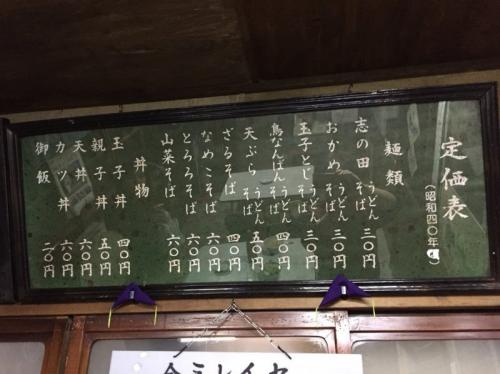 定価表
(昭和四〇年
麺類
志の田 うどん そば 三〇円
おかめ うどん そば 三〇円
玉子とじ うどん そば 三〇円
鳥なんばん うどん そば 四〇円
天ぷら うどん そば 五〇円
ざるそば 四〇円
なめこそば 六〇円
とろろそば 六〇円
山菜そば 六〇円
丼物
玉子丼 四〇円
親子丼 五〇円
天丼 六〇円
カツ丼 六〇円
御飯 二〇円